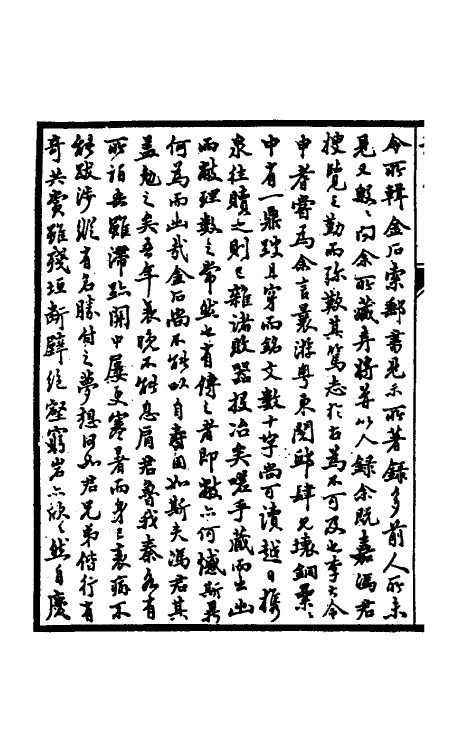 今所輯金石索郵書見示所著錄多前人所未
見又殷殷問余所藏弆將并以入錄余既嘉馮君
搜覽之勤而彌歎其篤志於古為不可及也李大令
申耆嘗為余言曩游粵東閱肆肆見壞銅纍纍
中有一鼎破且穿而銘文數十字尚可讀越日攜
泉往贖之則已雜諸敗器投冶矣嗟乎藏而出出
而毀理數之常然也有傳之者即毀亦何憾斯鼎
何為而出哉金石尚不能以自壽固如斯夫馮君其
益勉之矣吾年衰晚不能息肩君魯我秦各有
所泊吾雖滯跡關中屢更寒暑而身已衰病不
能跋涉縱有名勝付之夢想何如君兄弟偕行有
奇共賞雖殘垣斷壁絕壑窮岩亦欣欣然自慶